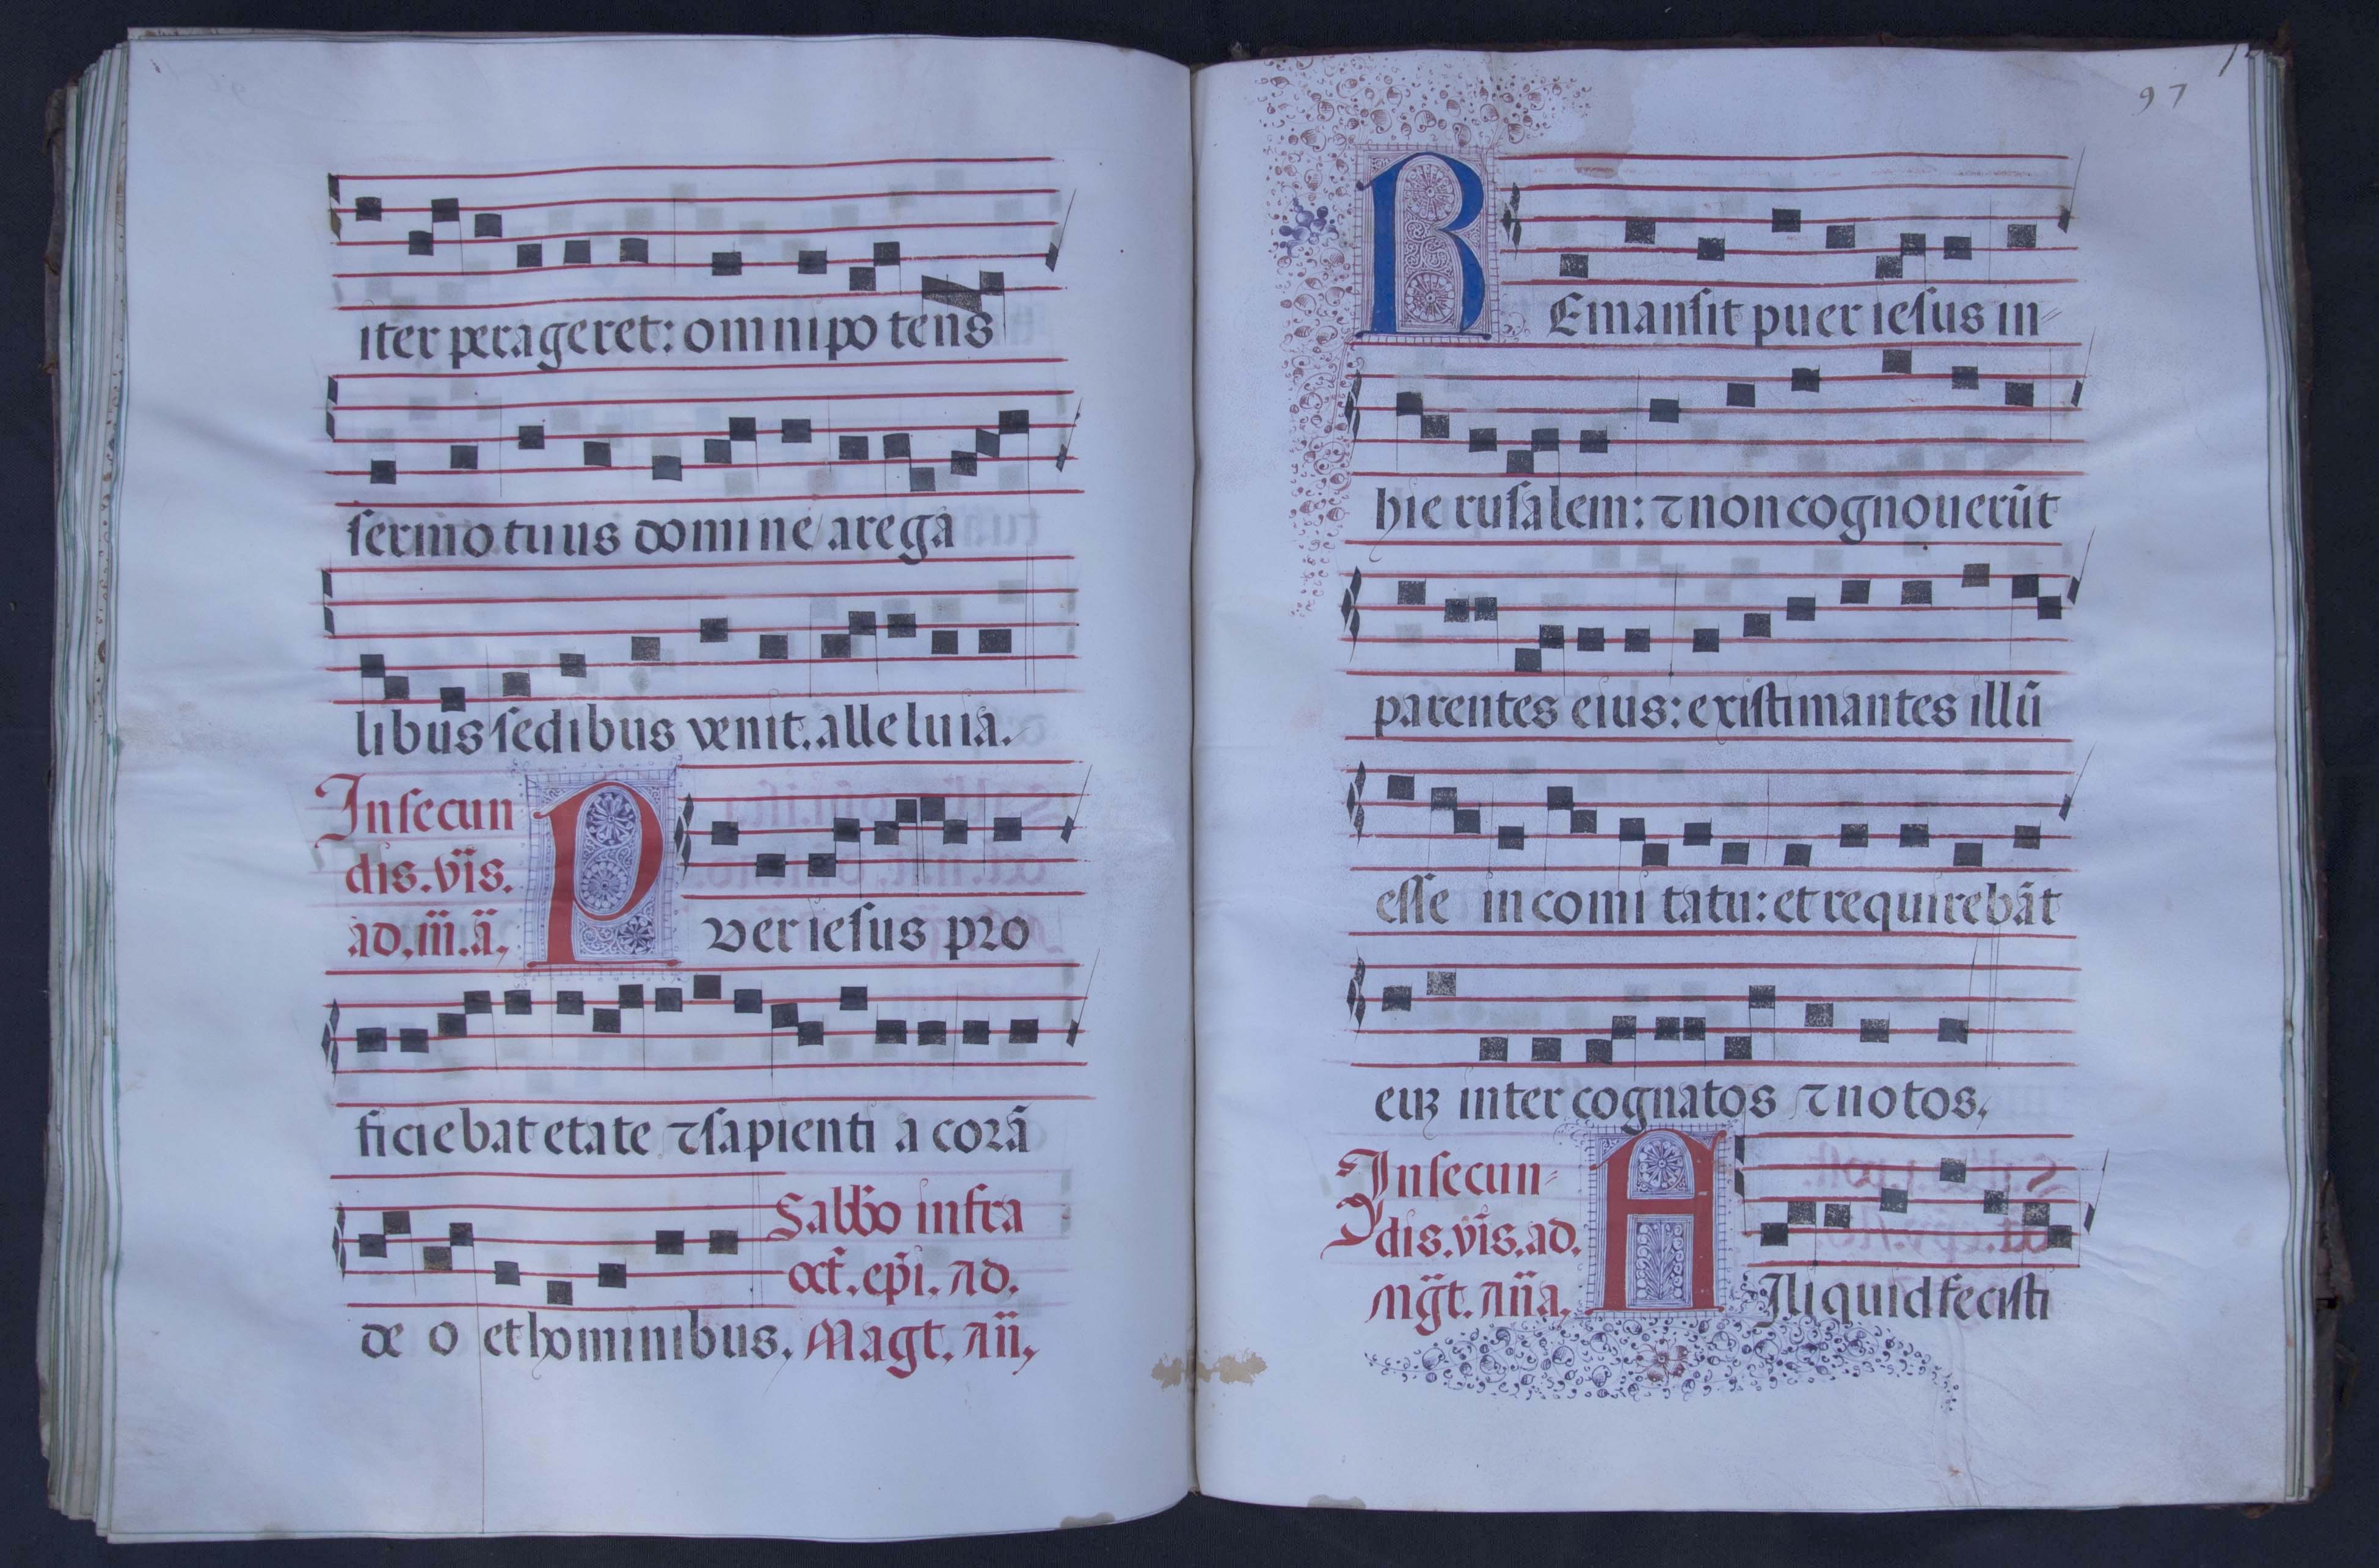 iter perageret: omnipotens
sermo tuus domine a rega
libus sedibus venit. alleluia.
In secun
dis. vı̃s.
ad. m̃. ã,
Puer iesus pro
ficiebat etate ⁊ sapientia corã
deo et hominibus.
Sabbõ infra
oct̃. ep̃i. Ad.
Magt̃. Añ,
97
REmansit puer iesus in=
hierusalem: ⁊ non cognouerũt
parentes eius: existimantes illũ
esse in comitatu: et requirebãt
eũꝫ inter cognatos ⁊ notos,
In secun=
dis. vı̃s. ad.
mg̃t. Aña,
AJliquid fecisti